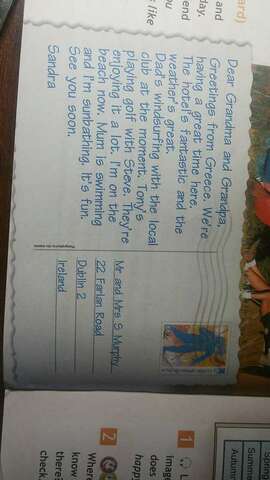 ard)
and
day.
end
ou
like
Dear Grandma and Grandpa,
Greetings from Greece. We're
having a great time here.
The hotel's fantastic and the
weather's great.
Dad's windsurfing with the local
club at the moment. Tony's
playing golf with Steve. They're
enjoying it a lot. I'm on the
beach now. Mum is swimming
and I'm sunbathing. It's fun.
See you soon.
Sandra
Mr and Mrs S Murphy
22 Farlan Road
Dublin 2
Ireland
Spring
Summe
Autumn
1
L
Imag
does
happ
2
Wher
know
there
check